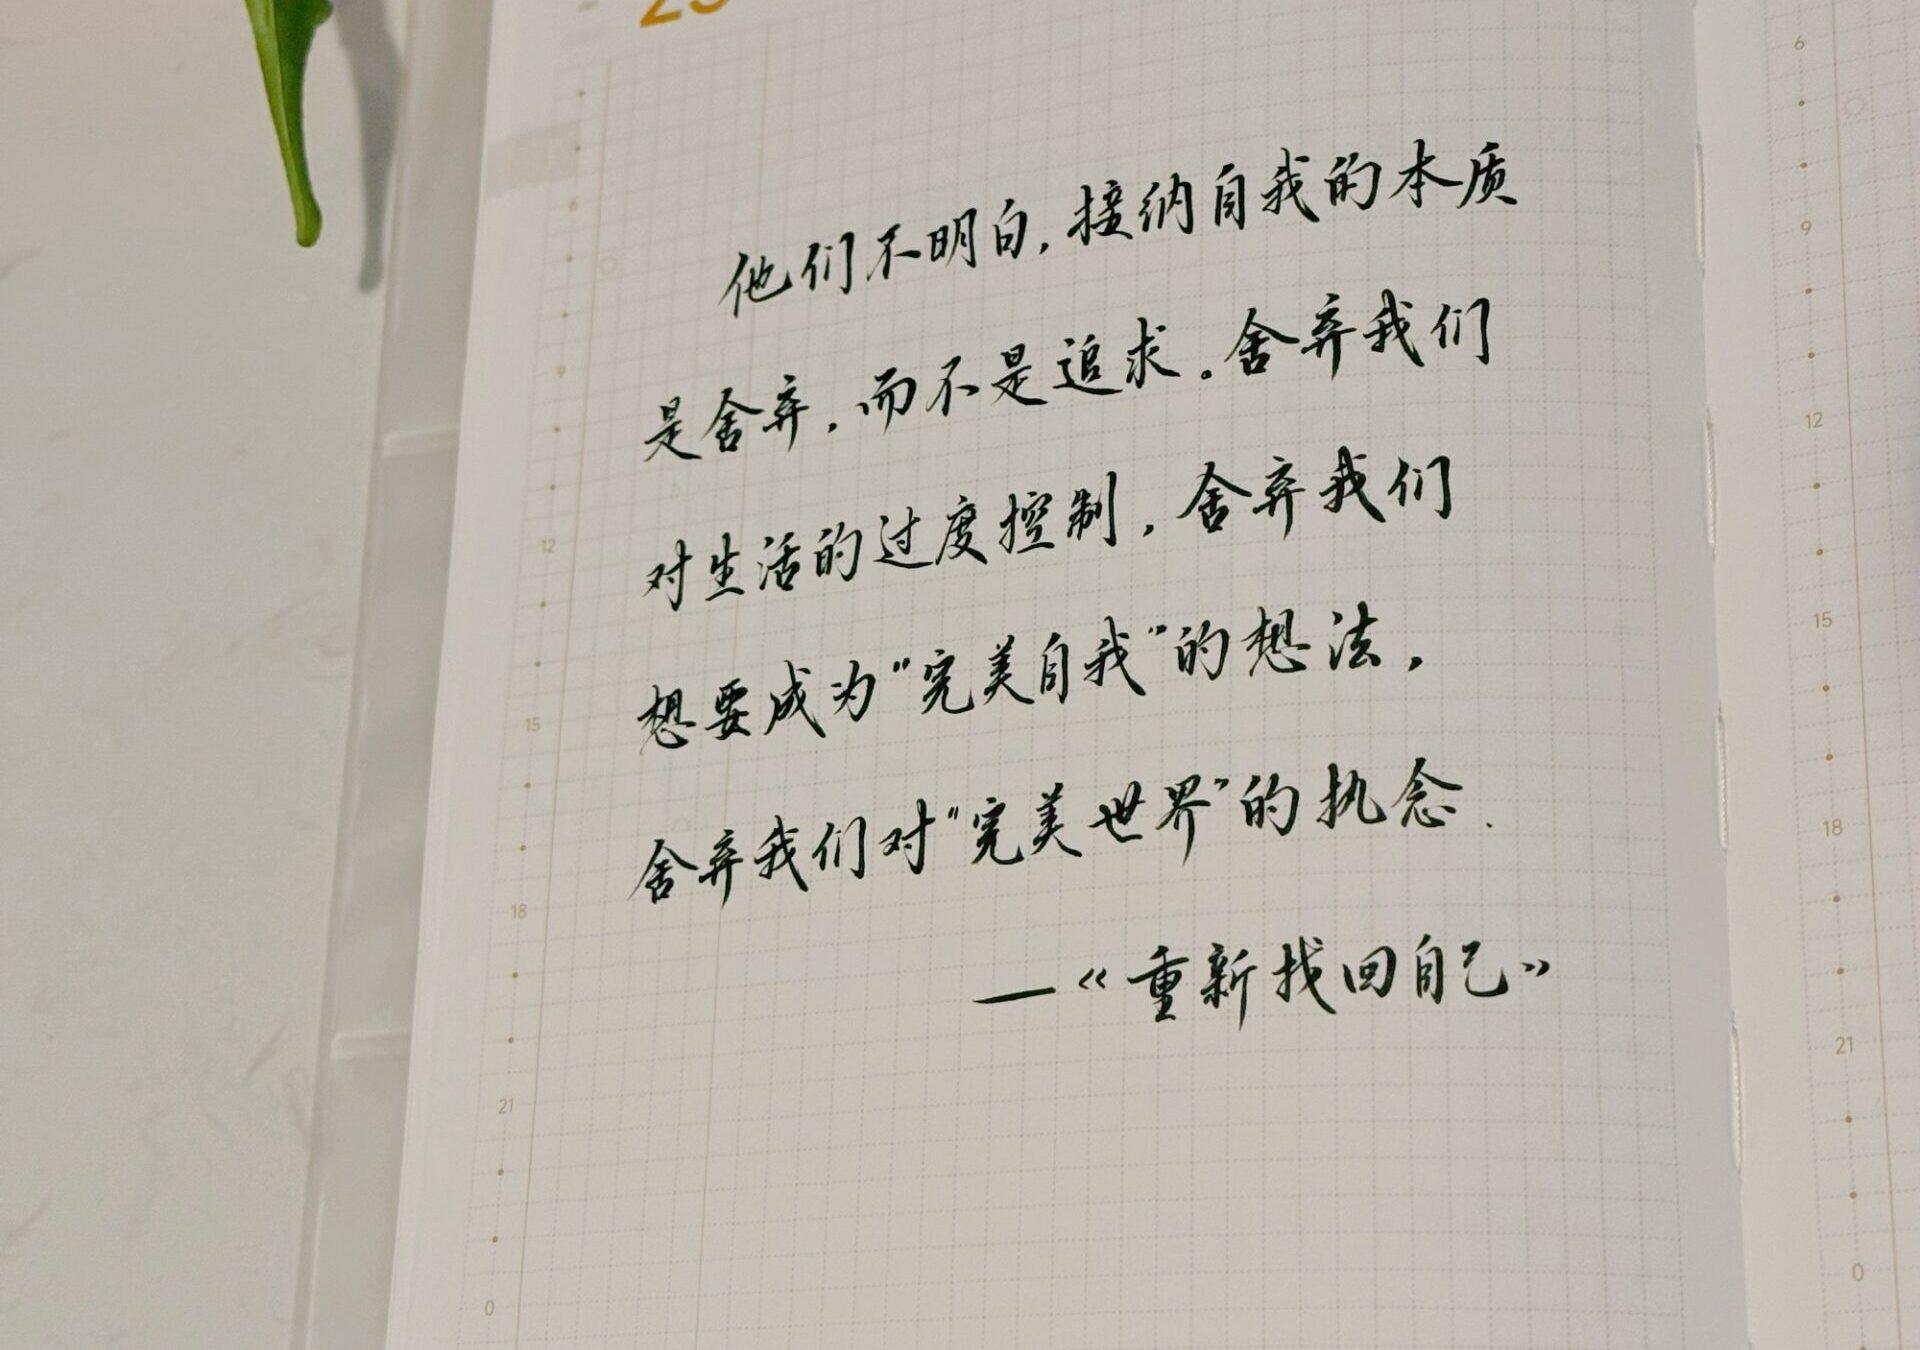 他们不明白,接纳自我的本质
是舍弃,而不是追求。舍弃我们
对生活的过度控制,舍弃我们
想要成为“完美自我”的想法,
舍弃我们对“完美世界”的执念.
—《重新找回自己》
6
9
12
15
18
21
0
6
9
12
15
18
21
0